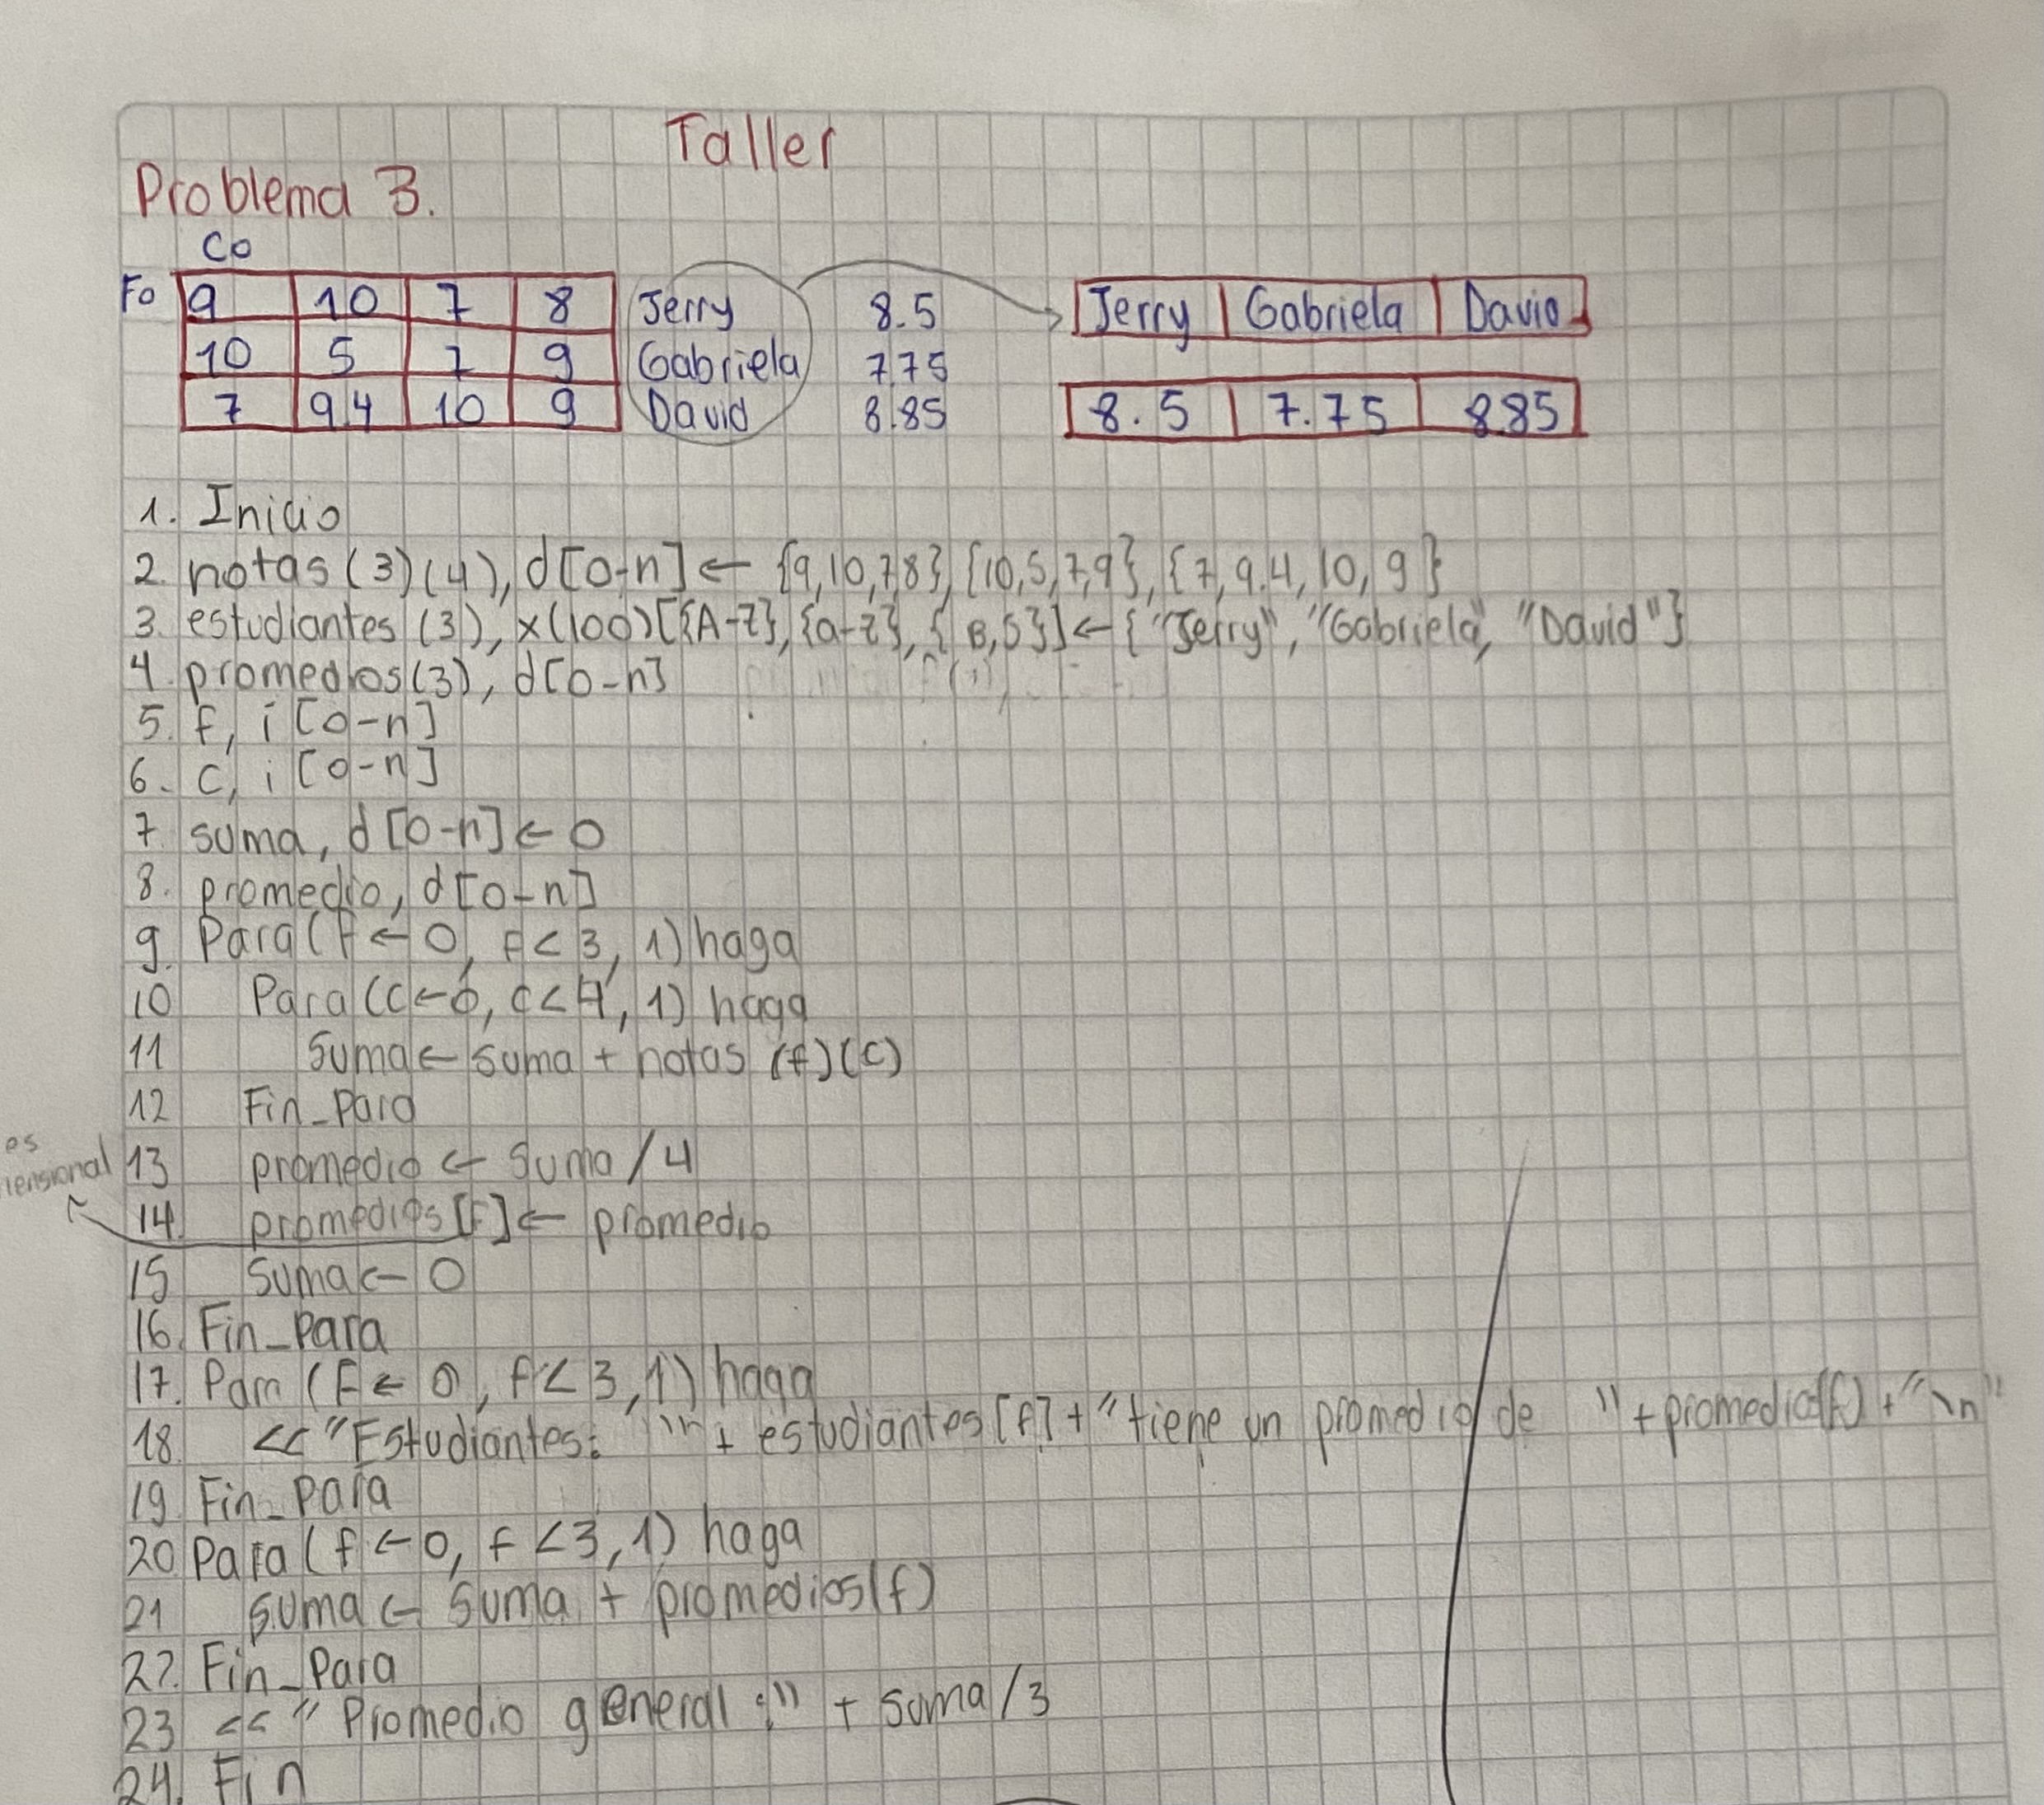 Taller
Problema 3.
Co
Fo 9 10 7 8 Jerry 8.5
10 5 7 9 Gabriela 7.75
7 9.4 10 9 David 8.85
Jerry Gabriela David
8.5 7.75 8.85
1. Inicio
2. notas (3)(4), d[0-n] ← {9,10,7,8}, {10,5,7,9}, {7,9.4,10,9}
3. estudiantes (3), x(100)[{A-Z}, {a-z}, {B,S}] ← {"Jerry", "Gabriela", "David"}
4. promedios(3), d[0-n]
5. f, i [0-n]
6. c, i [0-n]
7 suma, d[0-n] ← 0
8. promedio, d[0-n]
9. Para (f ← 0, f < 3, 1) haga
10 Para (c ← 0, c < 4, 1) haga
11 Suma ← suma + notas (f)(c)
12 Fin_Para
13 promedio ← Suma / 4
14. promedios [f] ← promedio
15 Suma ← 0
16. Fin_Para
17. Para (f ← 0, f < 3, 1) haga
18. << "Estudiantes: " + estudiantes [f] + "tiene un promedio de " + promedios(f) + "\n"
19. Fin_Para
20 Para (f ← 0, f < 3, 1) haga
21 suma ← Suma + promedios(f)
22. Fin_Para
23 << "Promedio general :" + suma/3
24. Fin
es